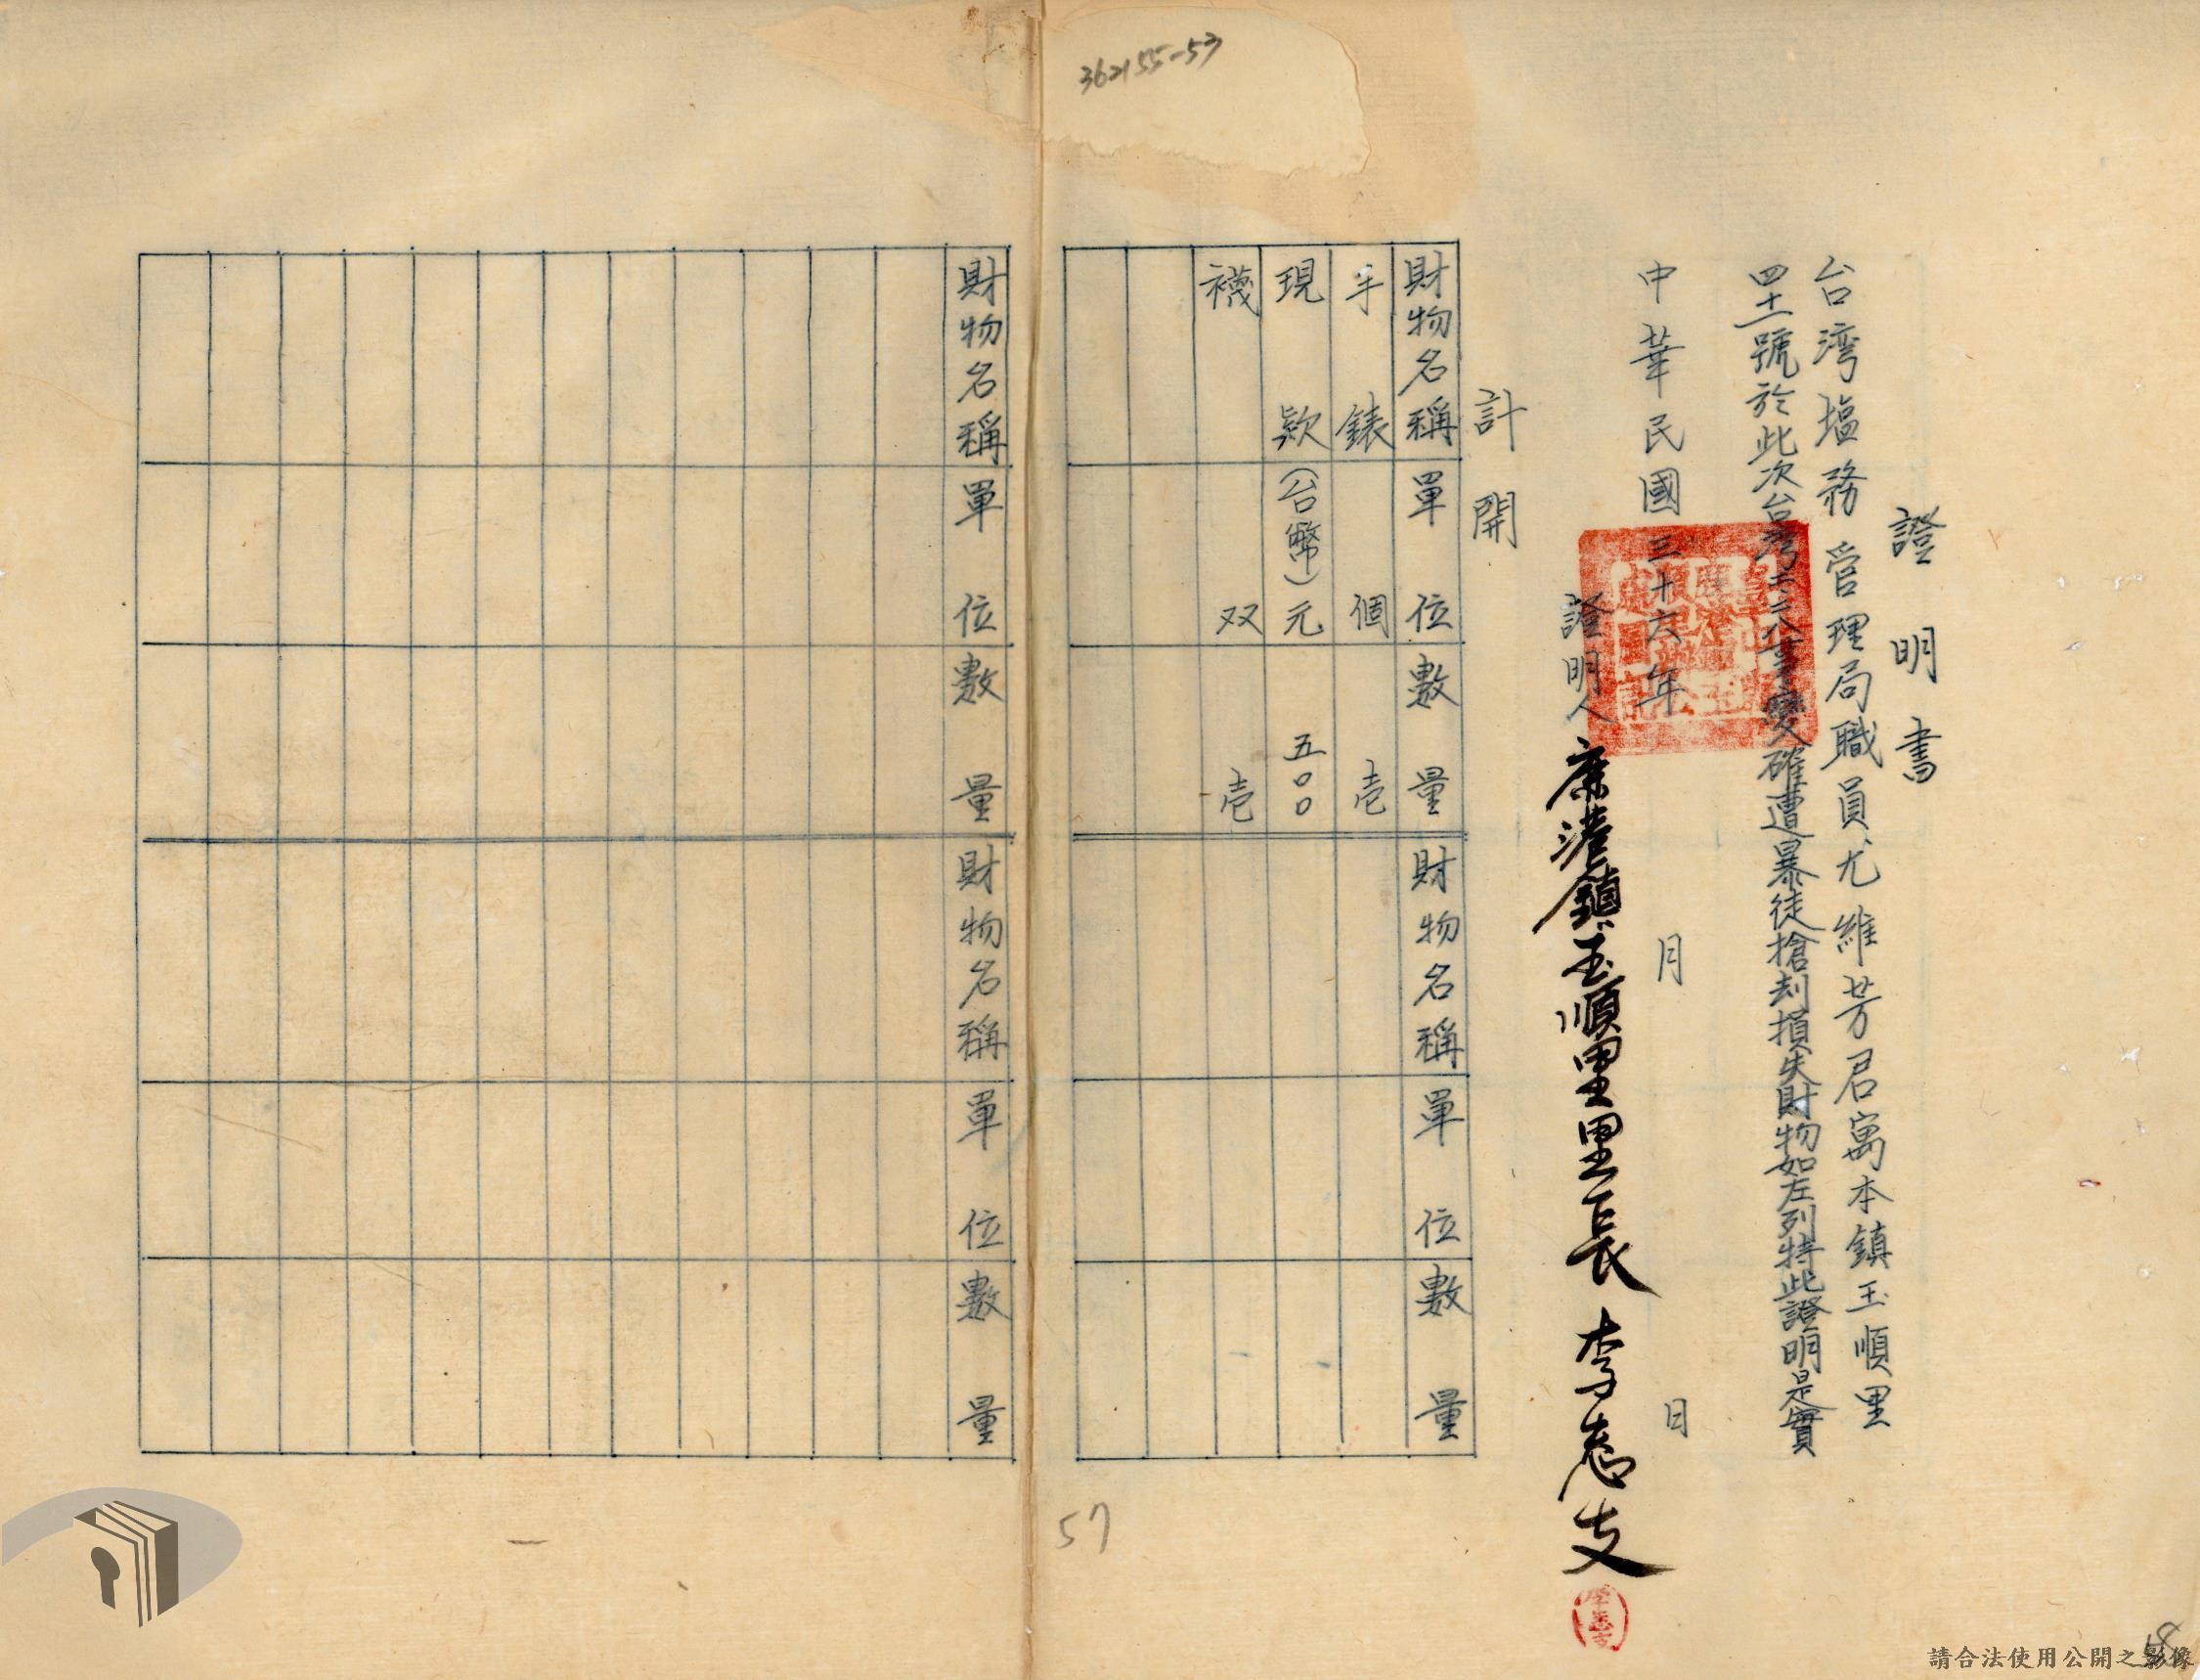 362155-57
證明書
台湾塩務管理局職員尤維芳君寓本鎮玉順里
四十一號於此次台湾二二八事變確遭暴徒搶刦損失財物如左列特此證明是實
中華民國三十六年 月 日
證明人 東港鎮玉順里里長 李志支
計開
財物名稱 單位 數量 財物名稱 單位 數量
手錶 個 壱
現款 (台幣)元 五〇〇
襪 双 壱
財物名稱 單位 數量 財物名稱 單位 數量
57
請合法使用公開之影像